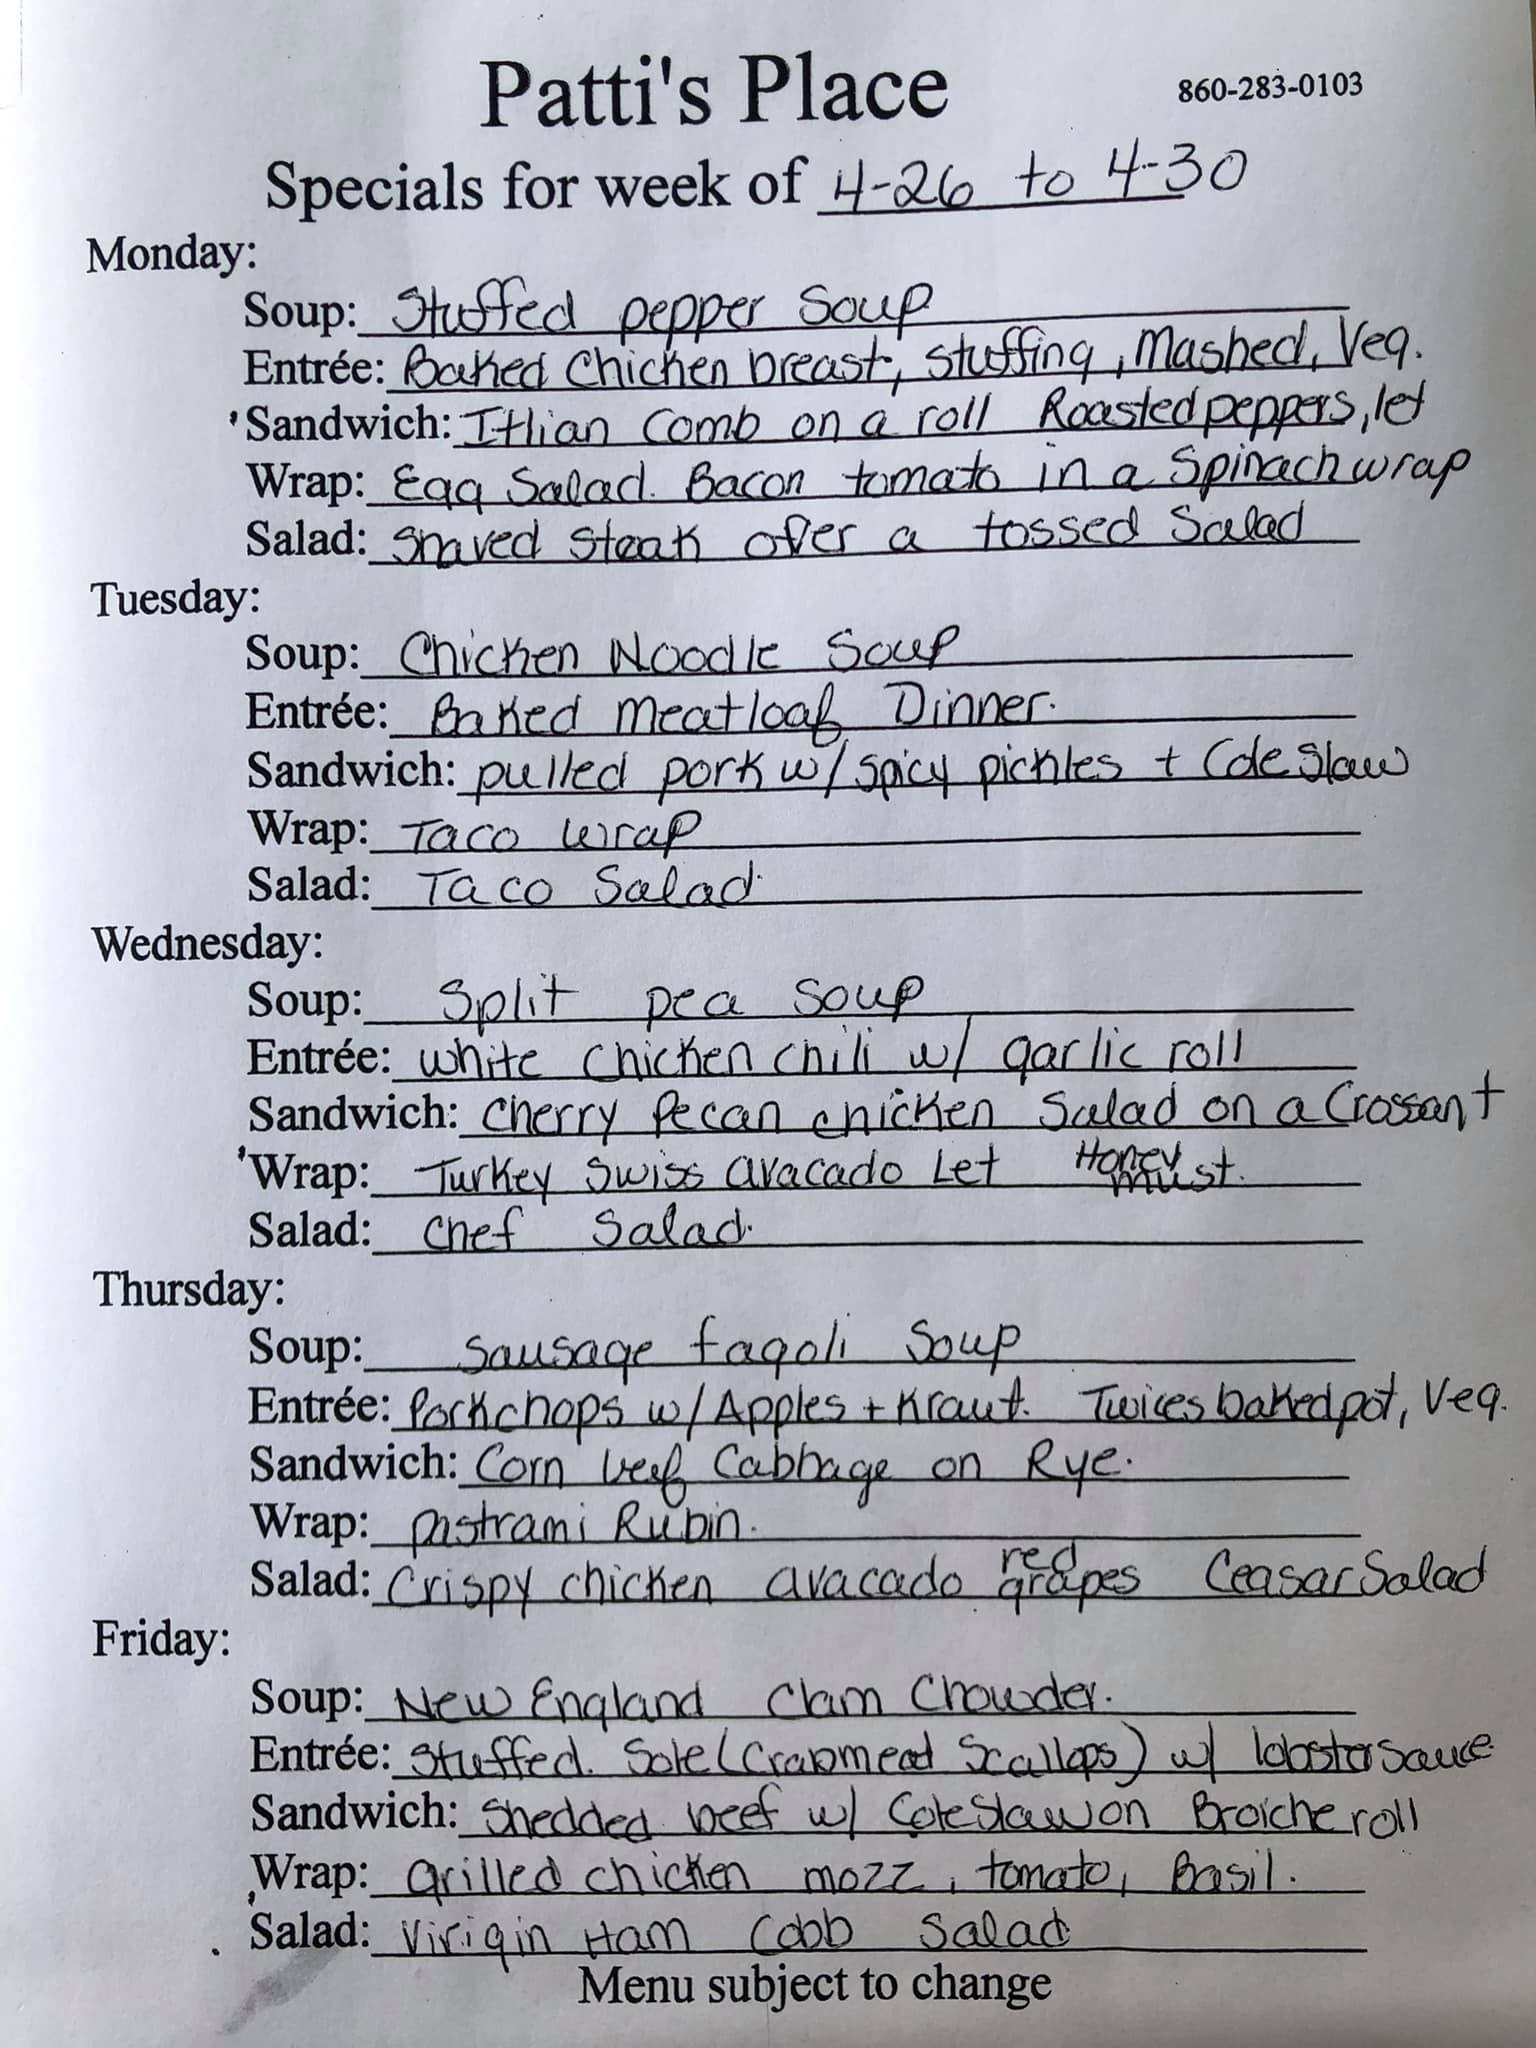 Patti's Place 860-283-0103
Specials for week of 4-26 to 4-30
Monday:
Soup: Stuffed pepper Soup
Entrée: Baked Chicken breast, stuffing, Mashed, Veg.
Sandwich: Itlian Comb on a roll Roasted peppers, let
Wrap: Egg Salad. Bacon tomato in a Spinach wrap
Salad: Shaved steak over a tossed Salad
Tuesday:
Soup: Chicken Noodle Soup
Entrée: Baked Meatloaf Dinner.
Sandwich: pulled pork w/ spicy pickles + Cole Slaw
Wrap: Taco Wrap
Salad: Taco Salad
Wednesday:
Soup: Split pea Soup
Entrée: White Chicken chili w/ garlic roll
Sandwich: Cherry Pecan chicken Salad on a Crossant
Wrap: Turkey Swiss avacado Let Honey must.
Salad: Chef Salad.
Thursday:
Soup: Sausage fagoli Soup
Entrée: Porkchops w/ Apples + Kraut. Twices baked pot, Veg.
Sandwich: Corn beef Cabbage on Rye.
Wrap: Pastrami Rubin.
Salad: Crispy chicken avacado red grapes Ceasar Salad
Friday:
Soup: New England Clam Chowder.
Entrée: Stuffed. Sole (Crabmeat Scallops) w/ lobster sauce
Sandwich: Shedded beef w/ Coleslaw on Broiche roll
Wrap: Grilled chicken mozz, tomato, Basil.
Salad: Virigin Ham Cobb Salad
Menu subject to change